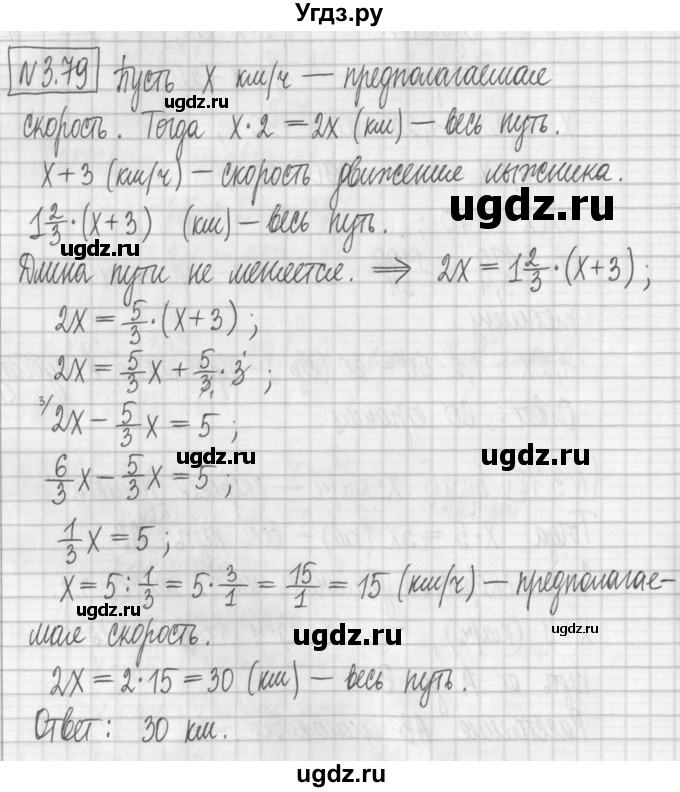 Угдз.ру
N 3.79 Пусть x км/ч — предполагаемая
ugdz.ru
скорость. Тогда x·2 = 2x (км) — весь путь.
x+3 (км/ч) — скорость движение лыжника.
ugdz.ru
1 2/3 ·(x+3) (км) — весь путь.
ugdz.ru
Длина пути не меняется. ⟹ 2x = 1 2/3 ·(x+3) ;
2x = 5/3 ·(x+3) ;
ugdz.ru
2x = 5/3 x + 5/3 · 3 ;
ugdz.ru
3/ 2x − 5/3 x = 5 ;
ugdz.ru
ugdz.ru
6/3 x − 5/3 x = 5 ;
1/3 x = 5 ;
x = 5 : 1/3 = 5 · 3/1 = 15/1 = 15 (км/ч) — предполагае-
ugdz.ru
ugdz.ru
ugdz.ru
мая скорость.
2x = 2·15 = 30 (км) — весь путь.
ugdz.ru
Ответ: 30 км.
ugdz.ru
ugdz.ru
ugdz.ru